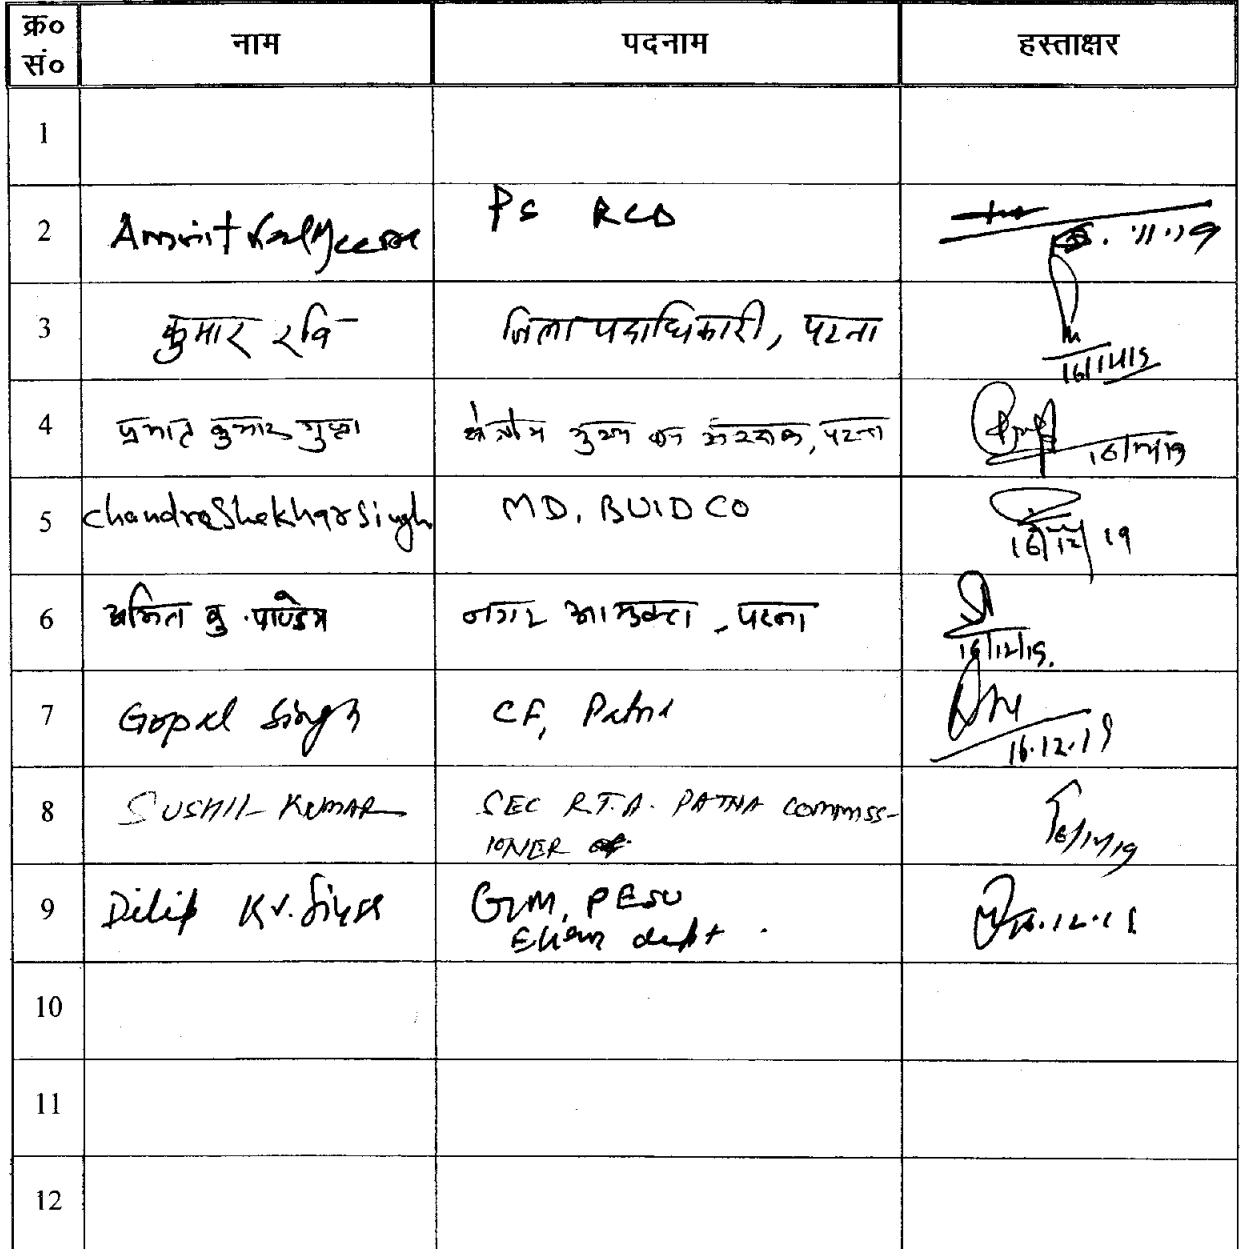 क्र०
सं०
नाम
पदनाम
हस्ताक्षर
1
2
Amrit
PS RCD
3
कुमार रवि
जिला पदाधिकारी, पटना
16/12/19
4
प्रभात कुमार गुप्ता
क्षेत्रीय मुख्य वन संरक्षक, पटना
16/12/19
5
Chandra Shekhar Singh
MD, BUIDCO
16/12/19
6
अमित कु. पाण्डेय
नगर आयुक्त, पटना
16/12/19.
7
Gopal Singh
CF, Patna
16.12.19
8
SUSHIL KUMAR
SEC R.T.A. PATNA COMMISS-
IONER
16/12/19
9
Dilip Kr. Singh
GM, PESU
dept.
10
11
12